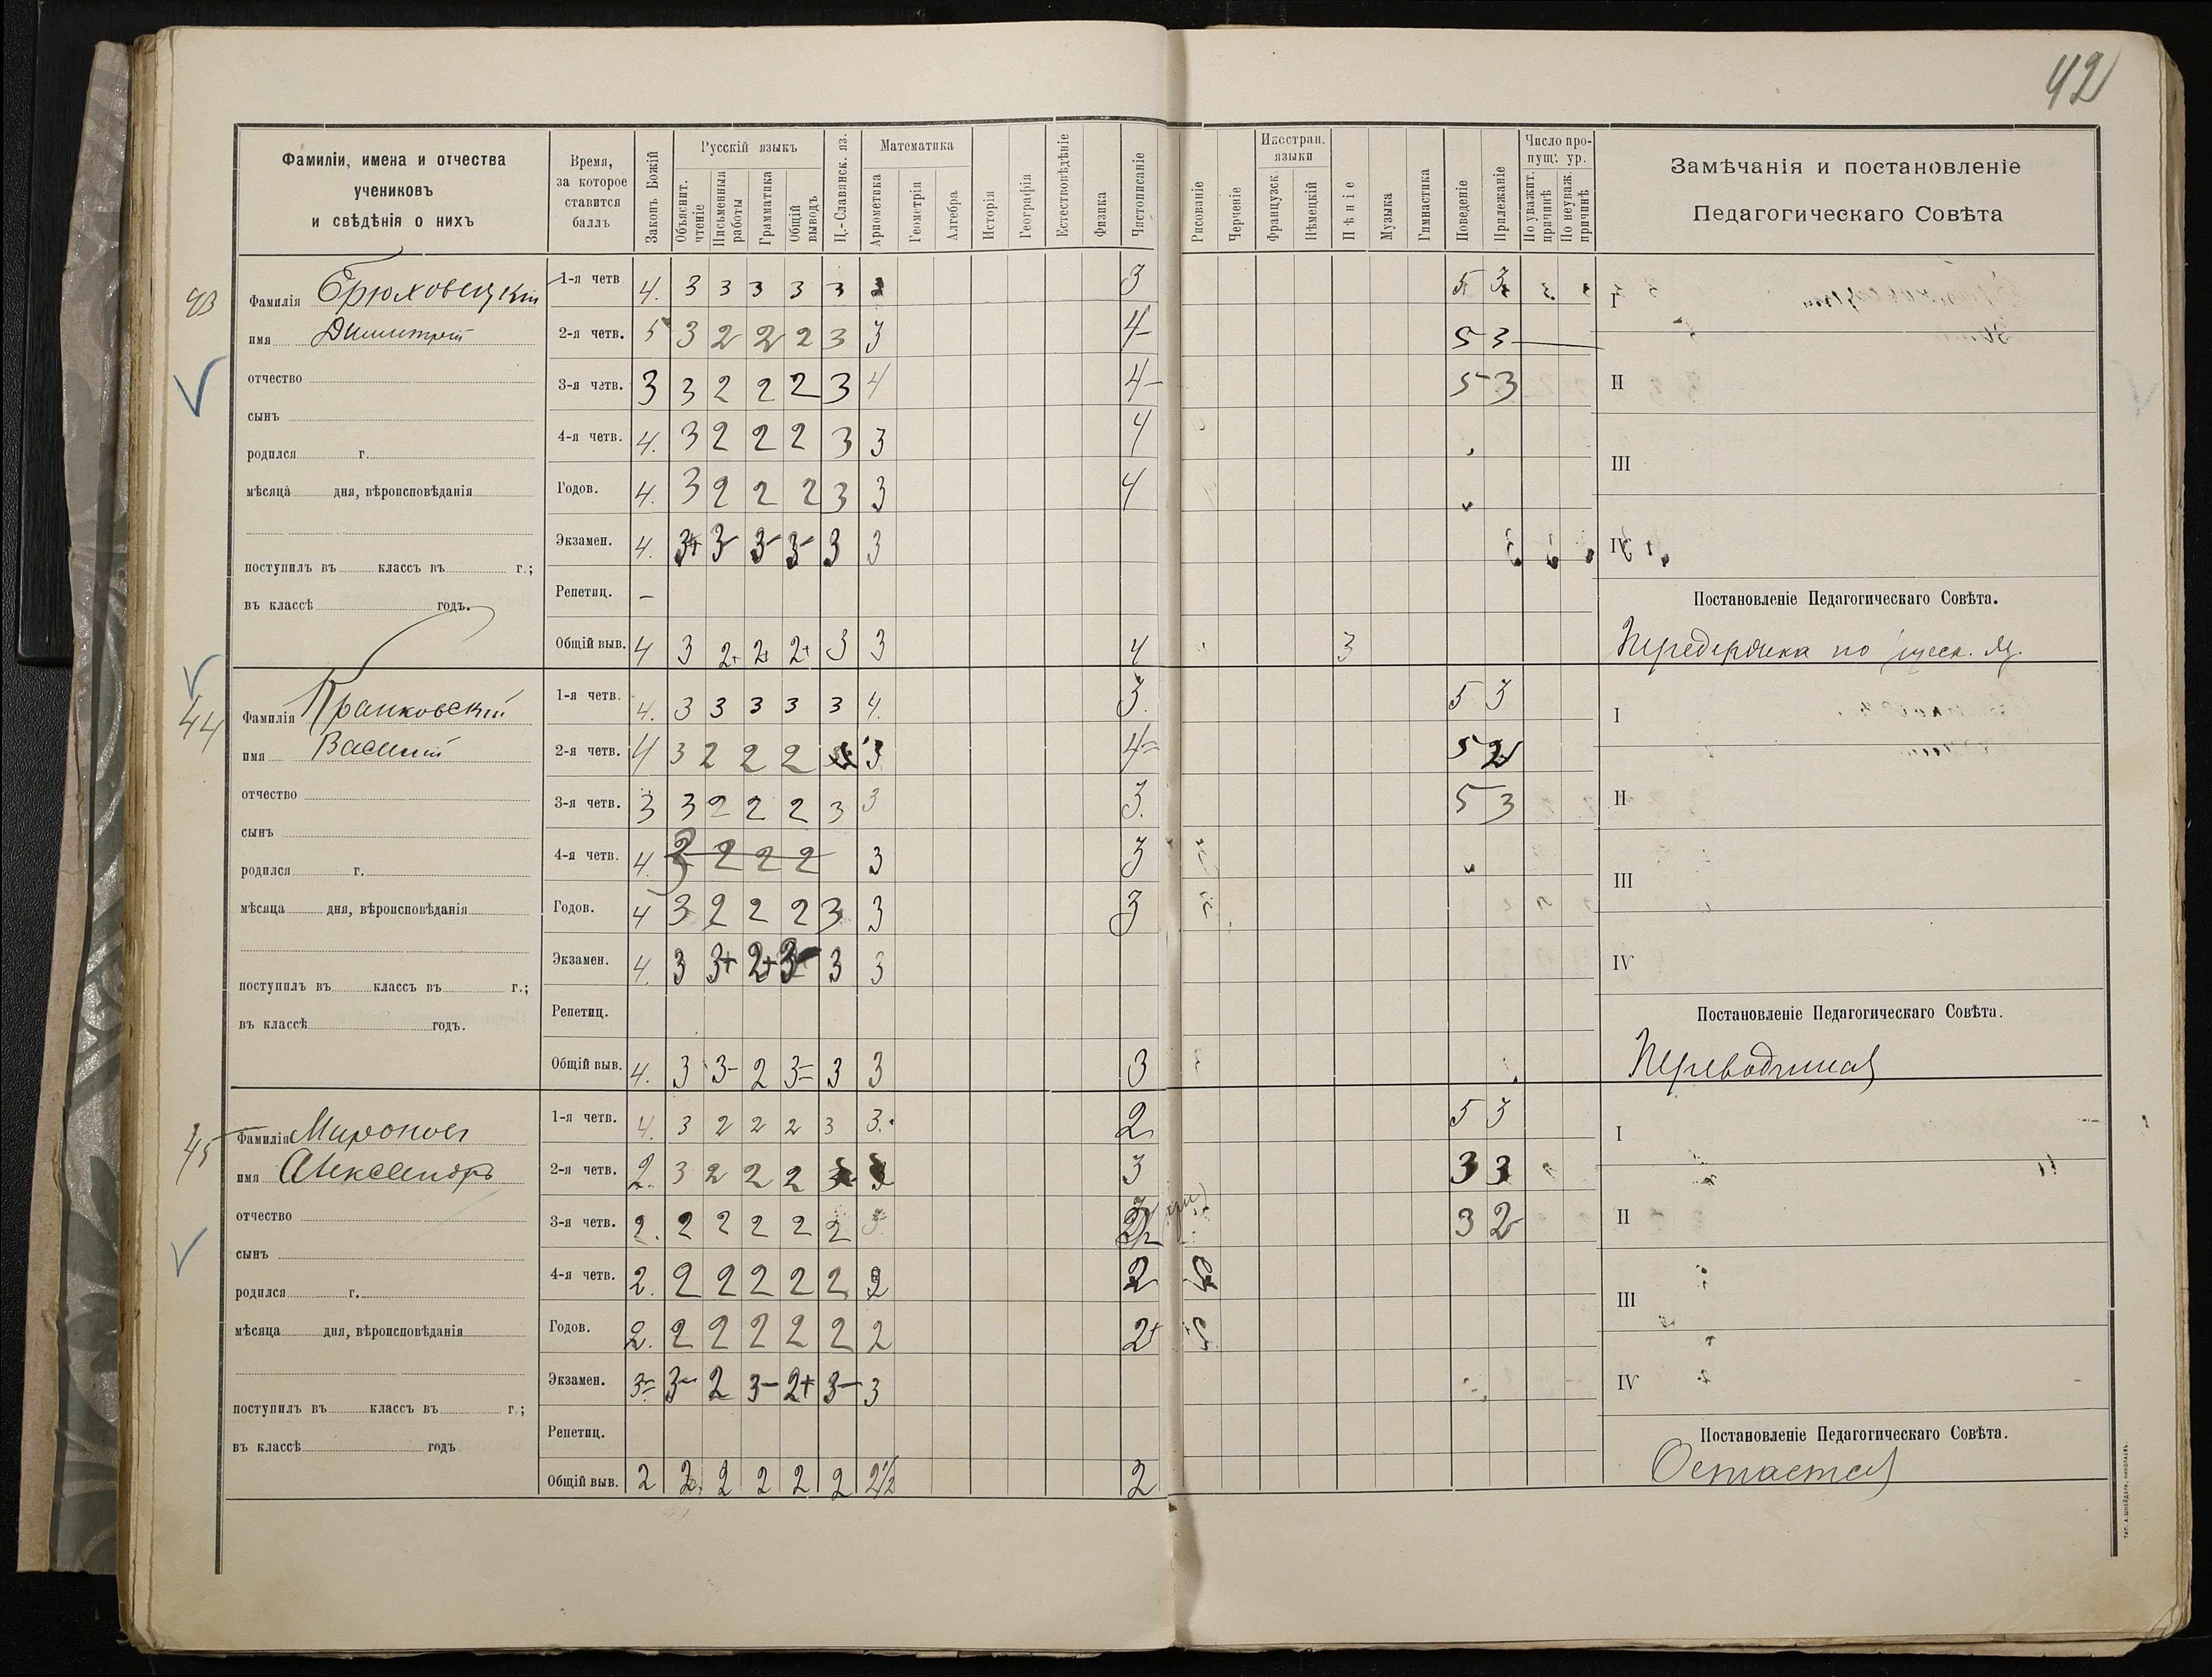 42
Фамиліи, имена и отчества
учениковъ
и свѣдѣнія о нихъ
Время,
за которое
ставится
баллъ
Законъ Божій
Русскій языкъ
Объяснит. чтеніе
Письменныя работы
Грамматика
Общій выводъ
Ц.-Славянск. яз.
Математика
Ариѳметика
Геометрія
Алгебра
Исторія
Географія
Естествовѣдѣніе
Физика
Чистописаніе
Рисованіе
Черченіе
Иностран. языки
Французск.
Нѣмецкій
Пѣніе
Музыка
Гимнастика
Поведеніе
Прилежаніе
Число пропущ. ур.
По уважит. причинѣ
По неуваж. причинѣ
Замѣчанія и постановленіе
Педагогическаго Совѣта
43
Фамилія Брюховецкій
имя Димитрій
отчество
сынъ
родился г.
мѣсяца дня, вѣроисповѣданія
поступилъ въ классъ въ г.;
въ классѣ годъ.
1-я четв. 4. 3 3 3 3 3 3 5 3
2-я четв. 5 3 2 2 2 3 3 4- 5 3
3-я четв. 3 3 2 2 2 3 4 4- 5 3
4-я четв. 4. 3 2 2 2 3 3 4
Годов. 4. 3 2 2 2 3 3 4
Экзамен. 4. 3+ 3- 3- 3- 3 3
Репетиц. -
Общій выв. 4 3 2+ 2+ 2+ 3 3 4 3
I
II
III
IV
Постановленіе Педагогическаго Совѣта.
Передержка по русск. яз.
44
Фамилія Кранковскій
имя Василій
отчество
сынъ
родился г.
мѣсяца дня, вѣроисповѣданія
поступилъ въ классъ въ г.;
въ классѣ годъ.
1-я четв. 4. 3 3 3 3 3 4. 3. 5 3
2-я четв. 4 3 2 2 2 3 4= 5 2
3-я четв. 3 3 2 2 2 3 3 3. 5 3
4-я четв. 4. 3 2 2 2 3 3
Годов. 4 3 2 2 2 3 3 3
Экзамен. 4. 3 3+ 2+ 3- 3 3
Репетиц.
Общій выв. 4. 3 3- 2 3= 3 3 3
I
II
III
IV
Постановленіе Педагогическаго Совѣта.
Переводится
45
Фамилія Мироновъ
имя Александръ
отчество
сынъ
родился г.
мѣсяца дня, вѣроисповѣданія
поступилъ въ классъ въ г.;
въ классѣ годъ
1-я четв. 4. 3 2 2 2 3 3. 2 5 3
2-я четв. 2. 3 2 2 2 3 3 3 3
3-я четв. 2. 2 2 2 2 2 3 3 2
4-я четв. 2. 2 2 2 2 2 2 2
Годов. 2. 2 2 2 2 2 2 2+
Экзамен. 3= 3- 2 3- 2+ 3- 3
Репетиц.
Общій выв. 2 2 2 2 2 2 2½ 2
I
II
III
IV
Постановленіе Педагогическаго Совѣта.
Остается
тип. А. Шнейдера, Николаевъ.